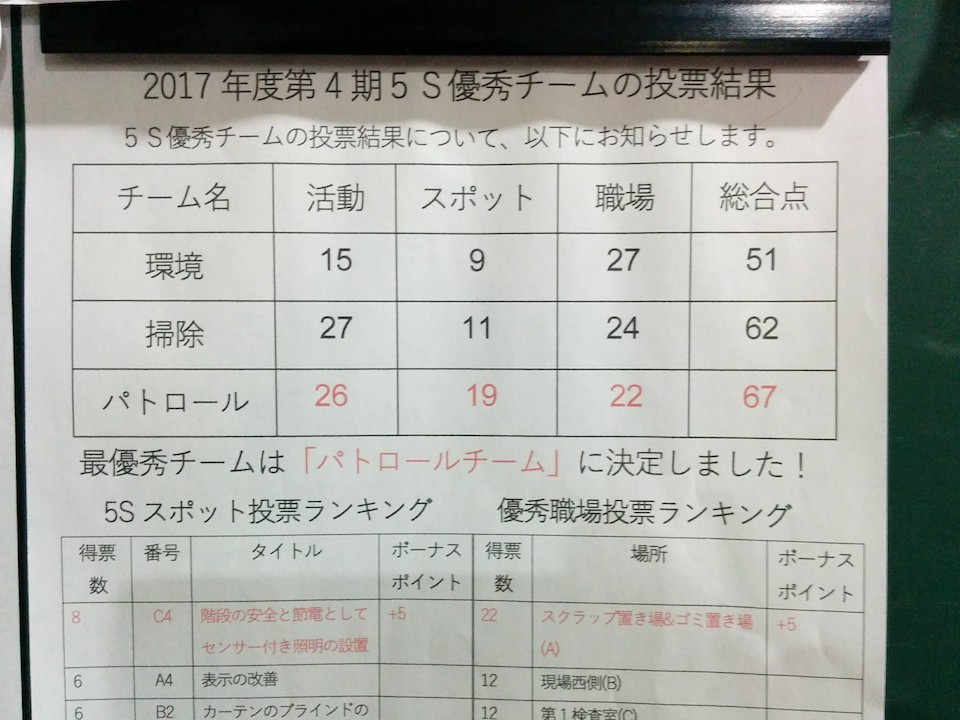 2017年度第4期5S優秀チームの投票結果
5S優秀チームの投票結果について、以下にお知らせします。
チーム名 活動 スポット 職場 総合点
環境 15 9 27 51
掃除 27 11 24 62
パトロール 26 19 22 67
最優秀チームは「パトロールチーム」に決定しました！
5Sスポット投票ランキング 優秀職場投票ランキング
得票 番号 タイトル ボーナス 得票 場所 ボーナス
数 ポイント 数 ポイント
8 C4 階段の安全と節電として +5 22 スクラップ置き場&ゴミ置き場 +5
センサー付き照明の設置 (A)
6 A4 表示の改善 12 現場西側(B)
6 B2 カーテンのブラインドの 12 第1検査室(C)